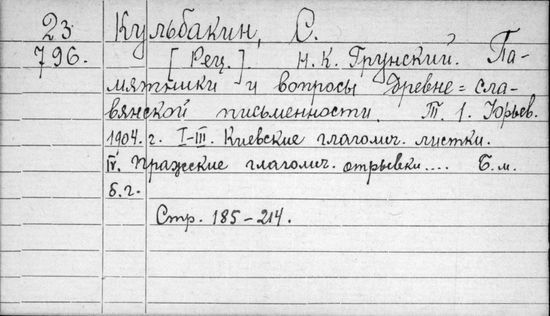 23 Кульбакин, С.
796. [Рец.]. Н.К. Грунский. Па-
мятники и вопросы древне=сла-
вянской письменности. Т. 1. Юрьев.
1904. г. I-III. Киевские глаголич. листки.
IV. Пражские глаголич. отрывки.... Б.м.
б.г.
Стр. 185-214.